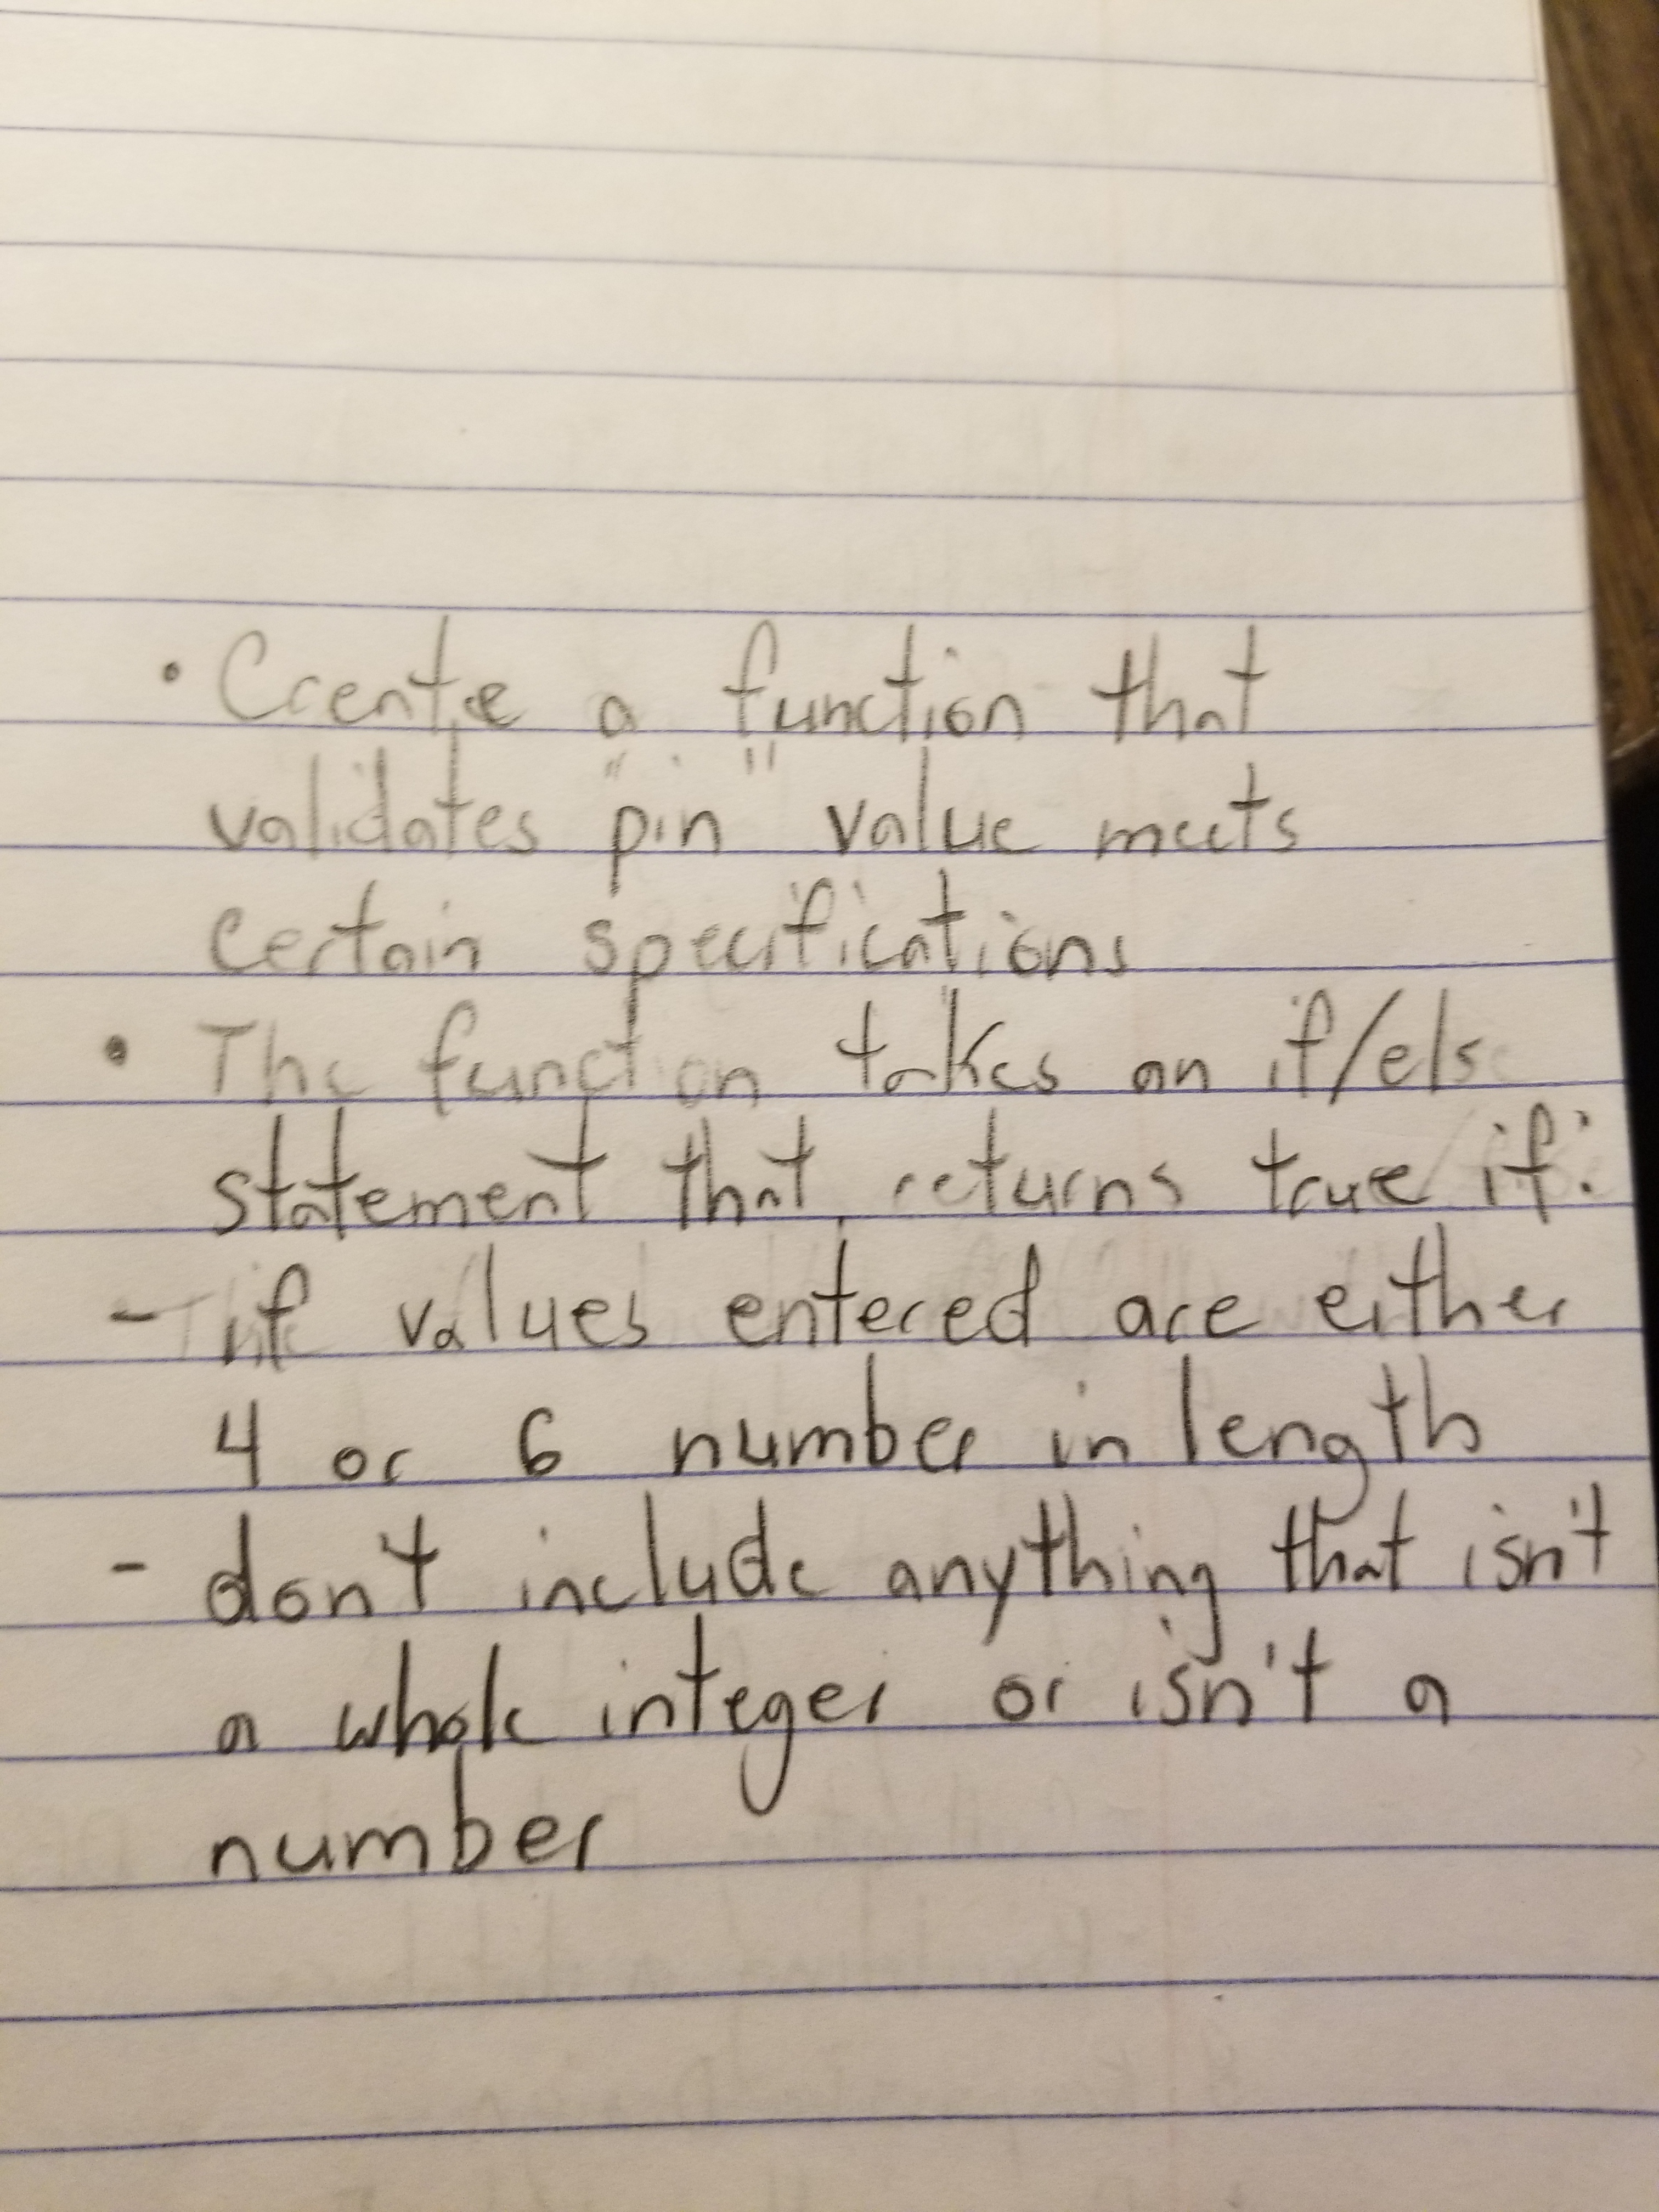 • Create a function that
validates "pin" value meets
certain specifications
• The function takes an if/else
statement that returns true if:
- if values entered are either
4 or 6 number in length
- don't include anything that isn't
a whole integer or isn't a
number